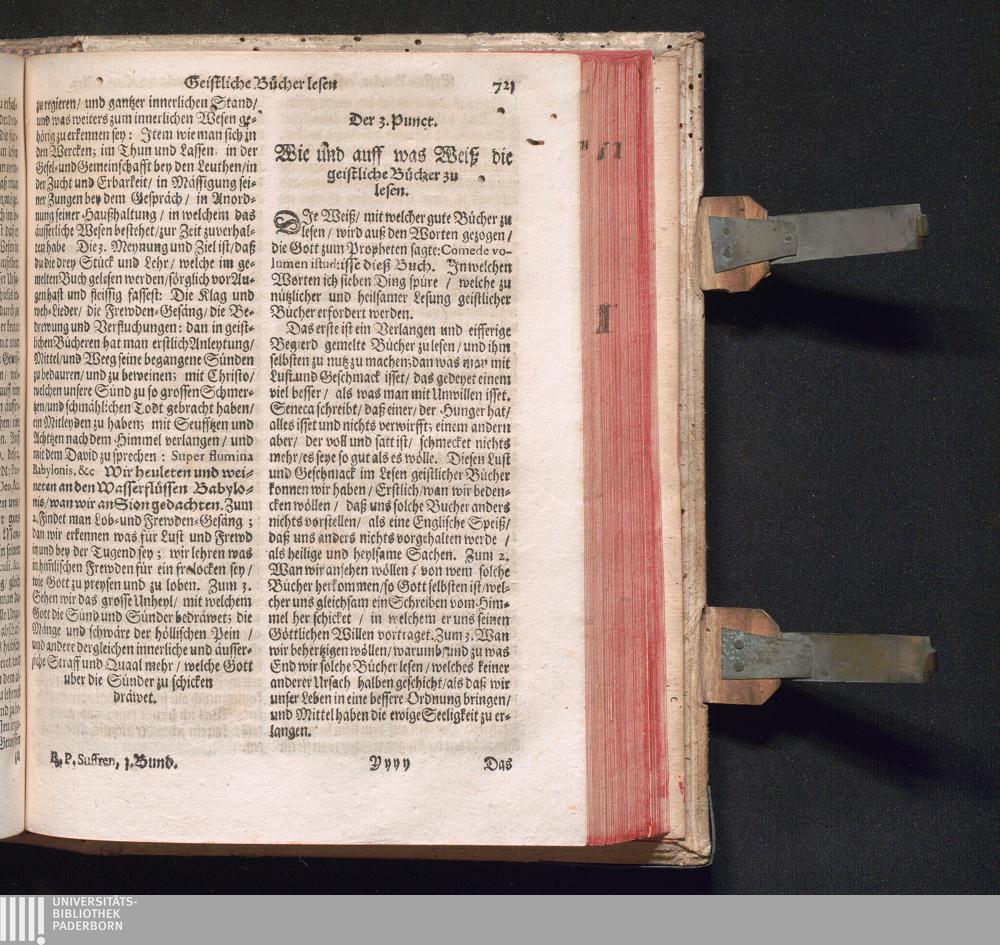 Geistliche Bücher lesen
721
zu regieren/ und gantzer innerlichen Stand/
und was weiters zum innerlichen Wesen ge-
hörig zu erkennen sey: Item wie man sich in
den Wercken; im Thun und Lassen in der
Gesel- und Gemeinschafft bey den Leuthen/in
der Zucht und Erbarkeit/ in Mässigung sei-
ner Zungen bey dem Gespräch/ in Anord-
nung seiner Haußhaltung/ in welchem das
äusserliche Wesen bestehet/zur Zeit zuverhal-
ten habe Die 3. Meynung und Ziel ist/daß
du die drey Stück und Lehr/ welche im ge-
melten Buch gelesen werden/sörglich vor Au-
gen hast und fleissig fassest: Die Klag und
weh-Lieder/ die Frewden-Gesäng/ die Be-
drewung und Verfluchungen: dan in geist-
lichen Bücheren hat man erstlich Anleytung/
Mittel/und Weeg seine begangene Sünden
zu bedauren/ und zu beweinen; mit Christo/
welchen unsere Sünd zu so grossen Schmer-
tzen/und schmählichen Todt gebracht haben/
ein Mitleyden zu haben; mit Seufftzen und
Achtzen nach dem Himmel verlangen/ und
mit dem David zu sprechen: Super flumina
Babylonis, &c Wir heuleten und wei-
neten an den Wasserflüssen Babylo-
nis/wan wir an Sion gedachten. Zum
2. Findet man Lob- und Frewden-Gesäng;
dan wir erkennen was für Lust und Frewd
in und bey der Tugend sey; wir lehren was
in himlischen Frewden für ein frolocken sey/
wie Gott zu preysen und zu loben. Zum 3.
Sehen wir das grosse Unheyl/ mit welchem
Gott die Sünd und Sünder bedräwet; die
Mänge und schwäre der höllischen Pein/
und andere dergleichen innerliche und äusser-
liche Straff und Quaal mehr/ welche Gott
über die Sünder zu schicken
dräwet.
R. P. Suffren, 1. Bund.
Der 3. Punct.
Wie und auff was Weiß die
geistliche Bücher zu
lesen.
Die Weiß/ mit welcher gute Bücher zu
lesen/ wird auß den Worten gezogen/
die Gott zum Propheten sagte: Comede vo-
lumen istud: isse dieß Buch. In welchen
Worten ich sieben Ding spüre/ welche zu
nützlicher und heilsamer Lesung geistlicher
Bücher erfordert werden.
Das erste ist ein Verlangen und eifferige
Begierd gemelte Bücher zu lesen/ und ihm
selbsten zu nutz zu machen; dan was man mit
Lust und Geschmack isset/ das gedeyet einem
viel besser/ als was man mit Unwillen isset.
Seneca schreibt/ daß einer/ der Hunger hat/
alles isset und nichts verwirfft; einem andern
aber/ der voll und satt ist/ schmecket nichts
mehr/es seye so gut als es wölle. Diesen Lust
und Geschmack im Lesen geistlicher Bücher
konnen wir haben/ Erstlich/wan wir beden-
cken wöllen/ daß uns solche Bucher anders
nichts vorstellen/ als eine Englische Speiß/
daß uns anders nichts vorgehalten werde/
als heilige und heylsame Sachen. Zum 2.
Wan wir ansehen wöllen/ von wem solche
Bücher herkommen/so Gott selbsten ist/wel-
cher uns gleichsam ein Schreiben vom Him-
mel her schicket/ in welchem er uns seinen
Göttlichen Willen vortraget. Zum 3. Wan
wir behertzigen wöllen/ warumb/und zu was
End wir solche Bücher lesen/ welches keiner
anderer Ursach halben geschicht/als daß wir
unser Leben in eine bessere Ordnung bringen/
und Mittel haben die ewige Seeligkeit zu er-
langen.
Yyyy
Das
UNIVERSITÄTS-
BIBLIOTHEK
PADERBORN